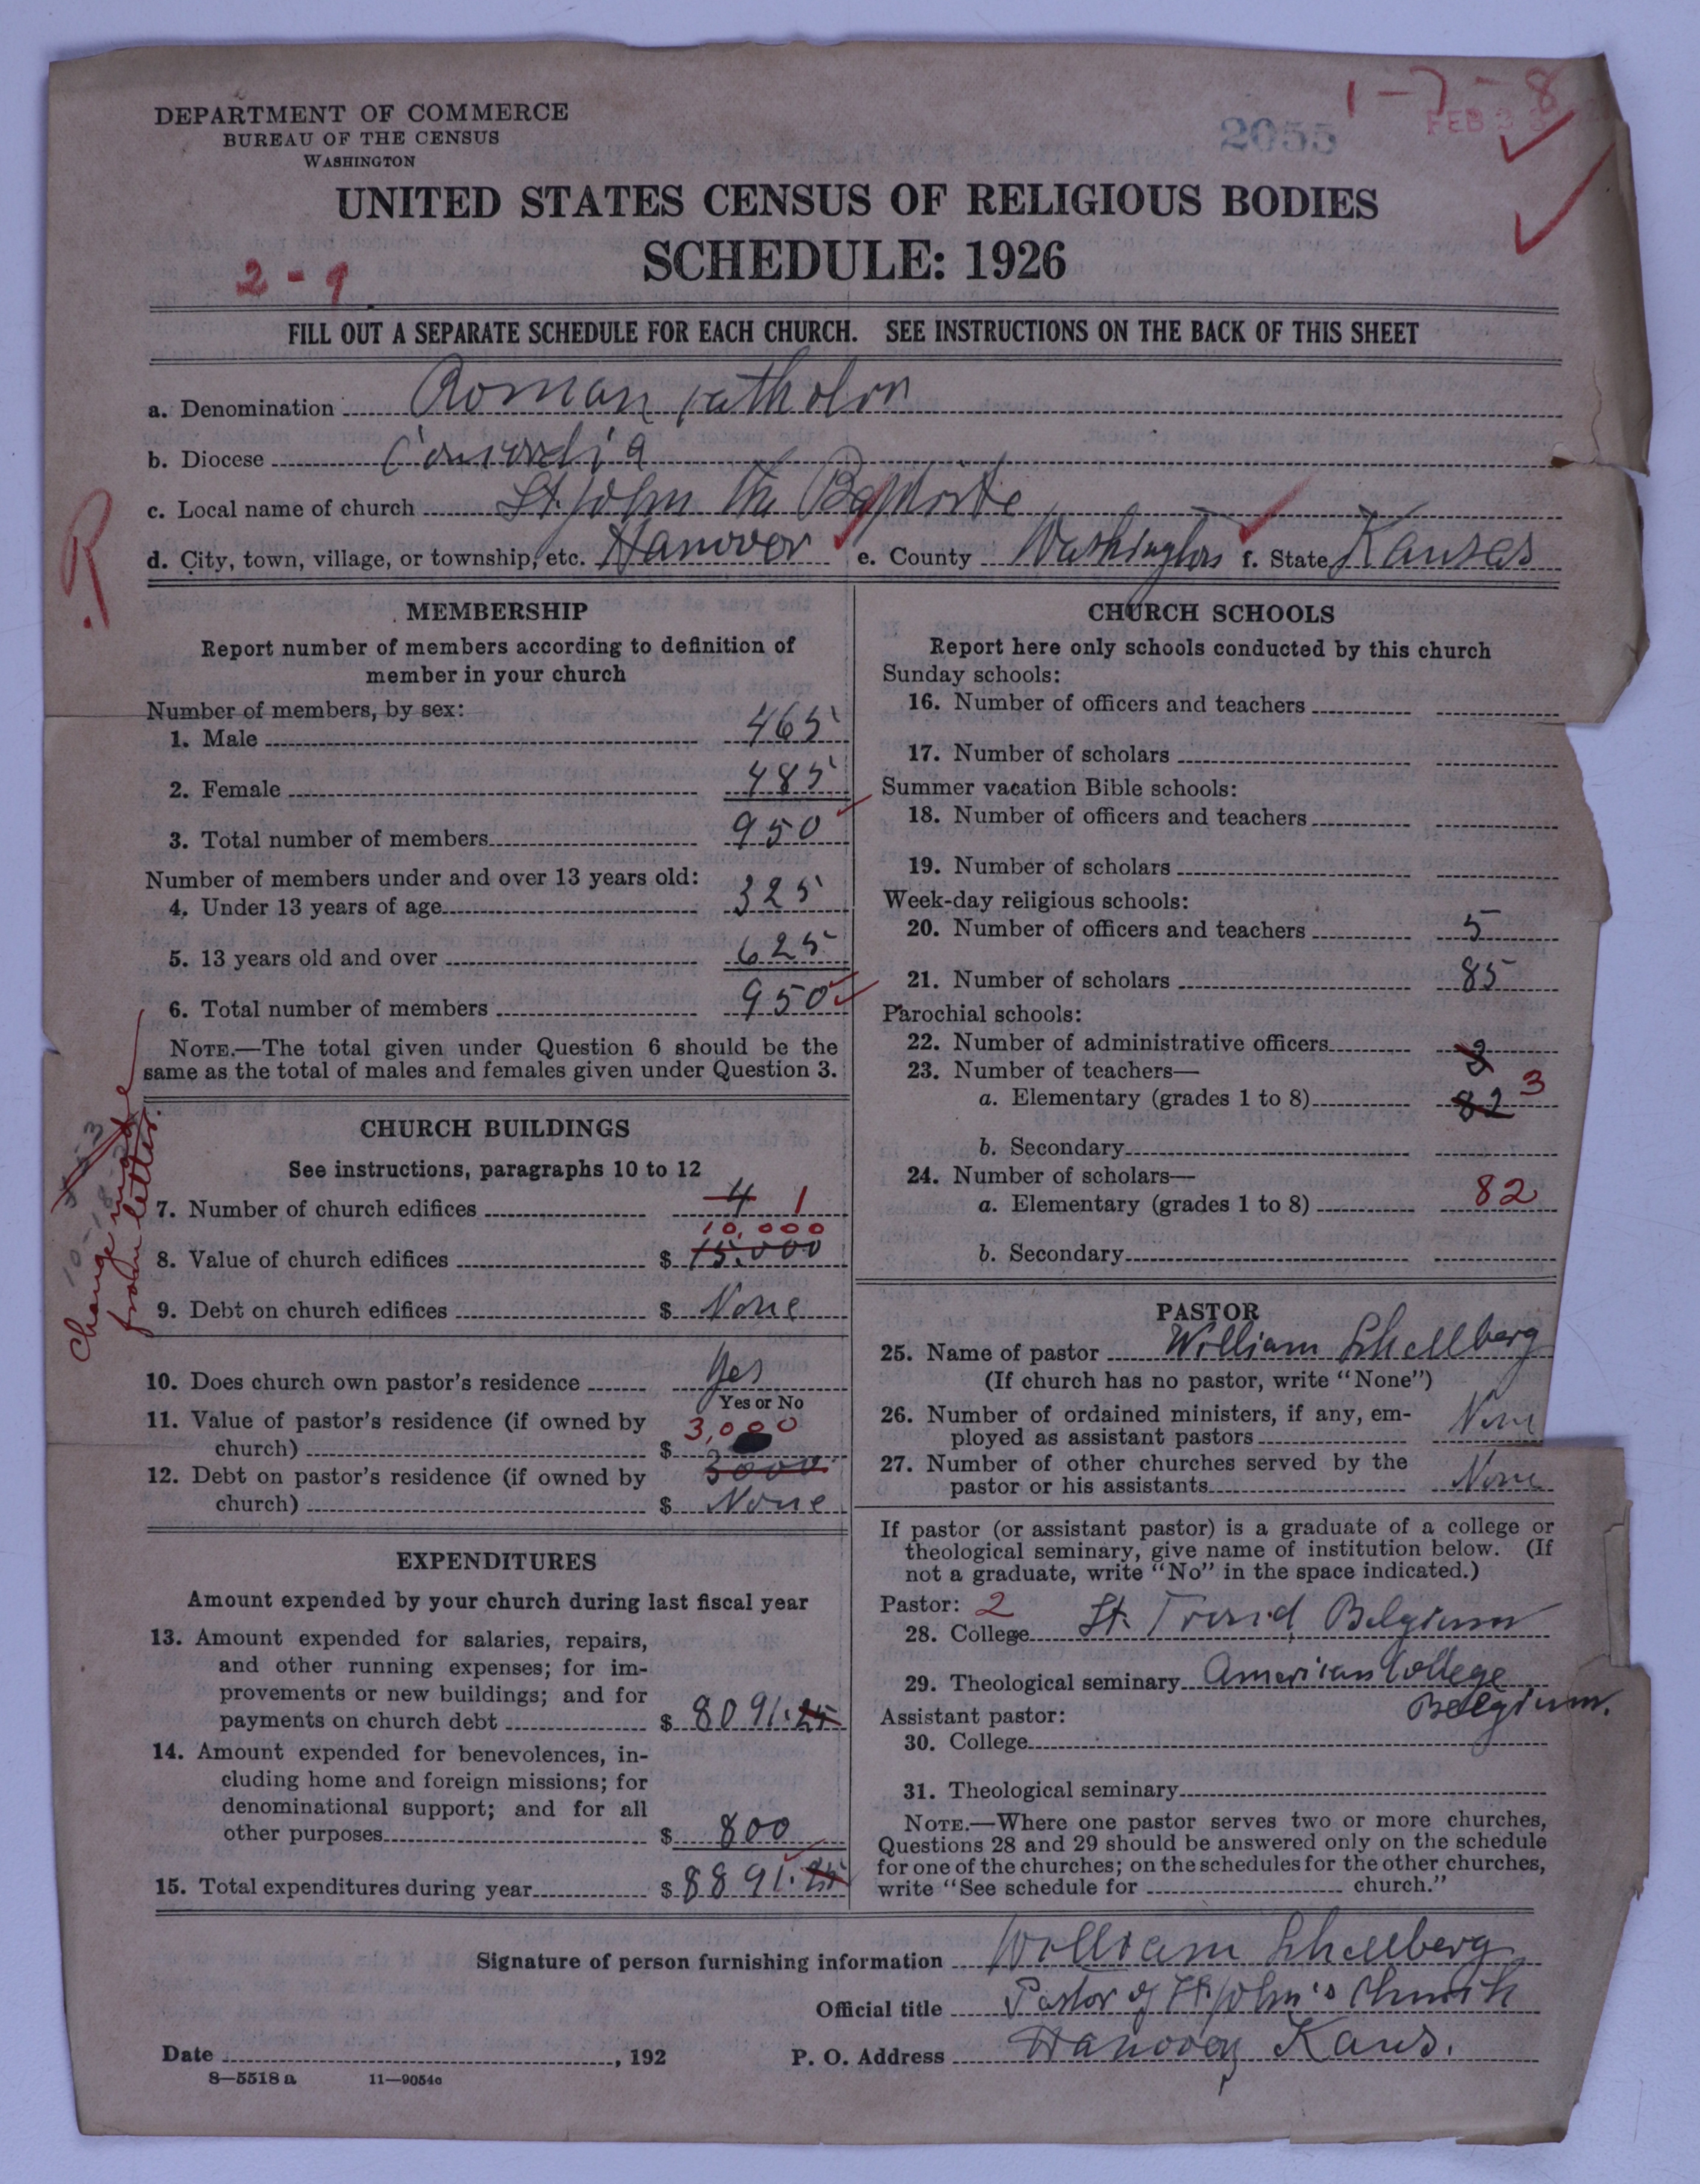 1-7-8
2055
FEB
DEPARTMENT OF COMMERCE
BUREAU OF THE CENSUS
WASHINGTON
UNITED STATES CENSUS OF RELIGIOUS BODIES
SCHEDULE: 1926
2-9
FILL OUT A SEPARATE SCHEDULE FOR EACH CHURCH. SEE INSTRUCTIONS ON THE BACK OF THIS SHEET
a. Denomination Roman Catholic
b. Diocese Concordia
c. Local name of church St. John the Baptiste
d. City, town, village, or township, etc. Hanover e. County Washington f. State Kansas
R
MEMBERSHIP
Report number of members according to definition of
member in your church
Number of members, by sex:
1. Male 465
2. Female 485
3. Total number of members 950
Number of members under and over 13 years old:
4. Under 13 years of age 325
5. 13 years old and over 625
6. Total number of members 950
NOTE.—The total given under Question 6 should be the
same as the total of males and females given under Question 3.
CHURCH BUILDINGS
See instructions, paragraphs 10 to 12
7. Number of church edifices 4 1
10,000
8. Value of church edifices $ 15.000
9. Debt on church edifices $ None
10. Does church own pastor's residence Yes
Yes or No
11. Value of pastor's residence (if owned by
church) $ 3,000
3000
12. Debt on pastor's residence (if owned by
church) $ None
Change made
from letter
EXPENDITURES
Amount expended by your church during last fiscal year
13. Amount expended for salaries, repairs,
and other running expenses; for im-
provements or new buildings; and for
payments on church debt $ 8091.25
14. Amount expended for benevolences, in-
cluding home and foreign missions; for
denominational support; and for all
other purposes $ 800
15. Total expenditures during year $ 8891.25
CHURCH SCHOOLS
Report here only schools conducted by this church
Sunday schools:
16. Number of officers and teachers
17. Number of scholars
Summer vacation Bible schools:
18. Number of officers and teachers
19. Number of scholars
Week-day religious schools:
20. Number of officers and teachers 5
21. Number of scholars 85
Parochial schools:
22. Number of administrative officers 3
23. Number of teachers—
a. Elementary (grades 1 to 8) 82 3
b. Secondary
24. Number of scholars—
a. Elementary (grades 1 to 8) 82
b. Secondary
PASTOR
25. Name of pastor William Schellberg
(If church has no pastor, write "None")
26. Number of ordained ministers, if any, em-
ployed as assistant pastors None
27. Number of other churches served by the
pastor or his assistants None
If pastor (or assistant pastor) is a graduate of a college or
theological seminary, give name of institution below. (If
not a graduate, write "No" in the space indicated.)
Pastor: 2
28. College St. Trond Belgium
29. Theological seminary American College
Belgium.
Assistant pastor:
30. College
31. Theological seminary
NOTE.—Where one pastor serves two or more churches,
Questions 28 and 29 should be answered only on the schedule
for one of the churches; on the schedules for the other churches,
write "See schedule for church."
Signature of person furnishing information William Schellberg
Official title Pastor of St. John's Church
Date , 192
P. O. Address Hanover Kans.
8—5518 a 11—9054c